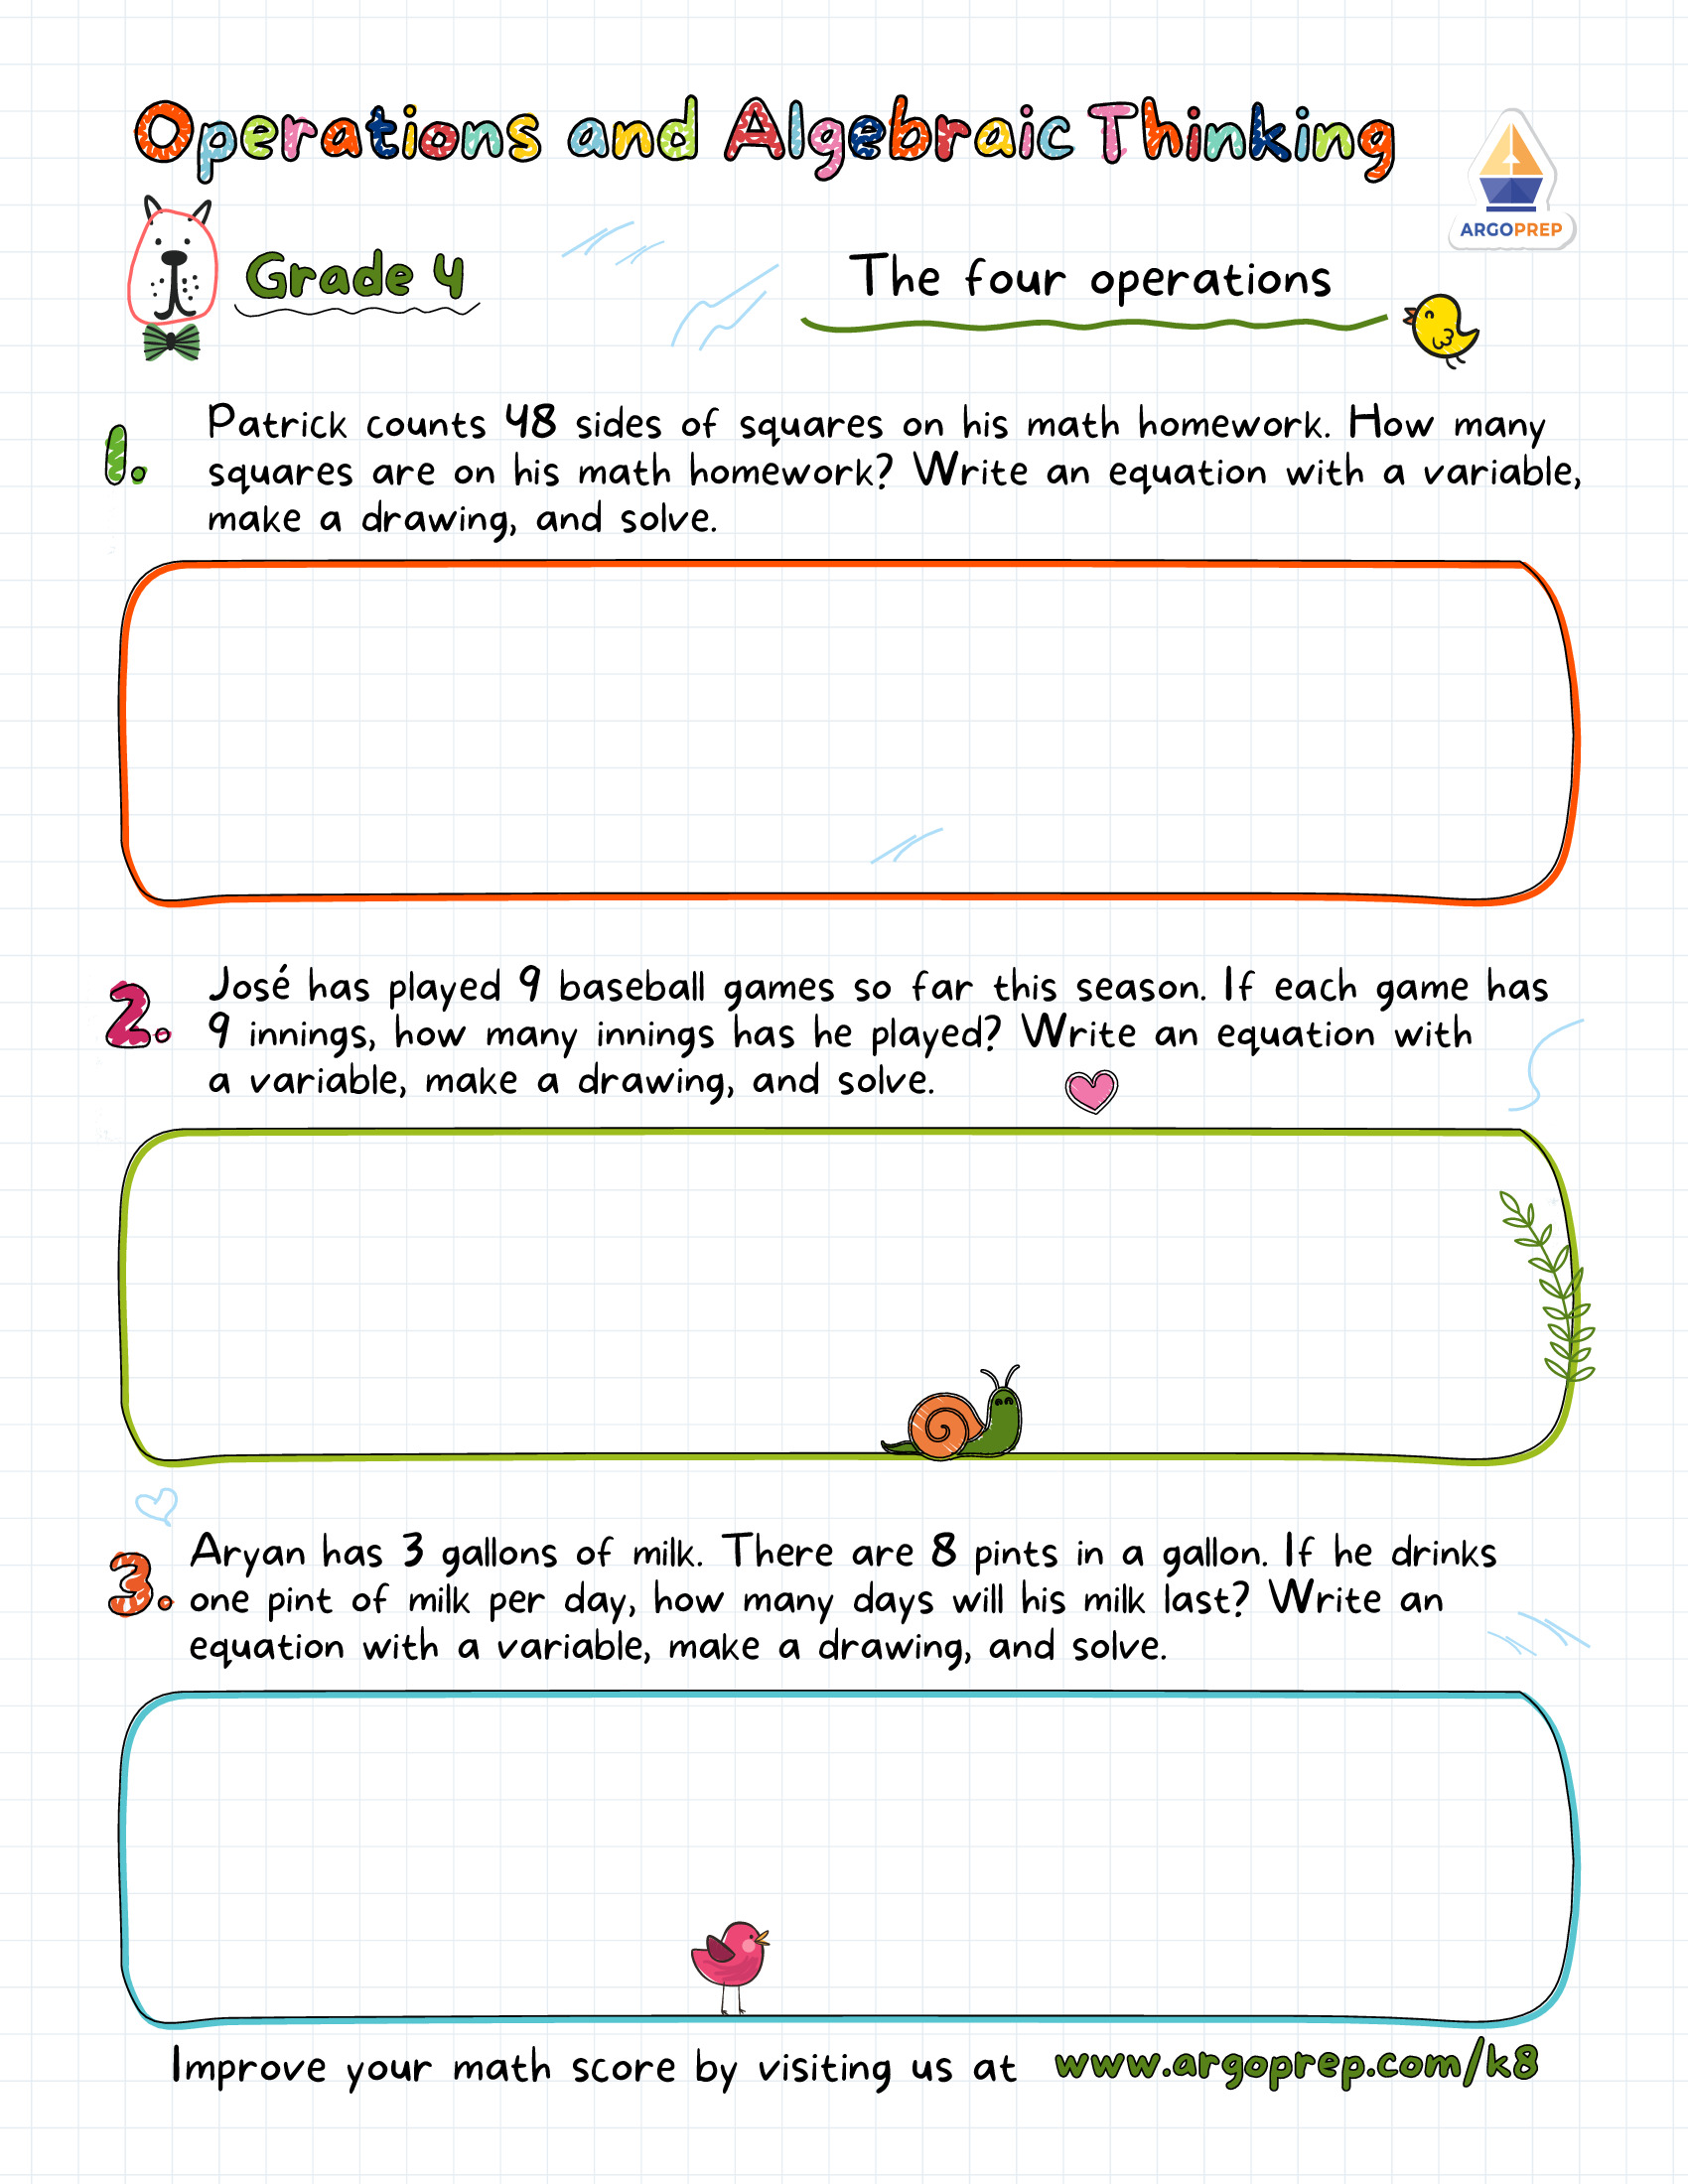 Operations and Algebraic Thinking
ARGOPREP
Grade 4
The four operations
1. Patrick counts 48 sides of squares on his math homework. How many
squares are on his math homework? Write an equation with a variable,
make a drawing, and solve.
2. José has played 9 baseball games so far this season. If each game has
9 innings, how many innings has he played? Write an equation with
a variable, make a drawing, and solve.
3. Aryan has 3 gallons of milk. There are 8 pints in a gallon. If he drinks
one pint of milk per day, how many days will his milk last? Write an
equation with a variable, make a drawing, and solve.
Improve your math score by visiting us at www.argoprep.com/k8